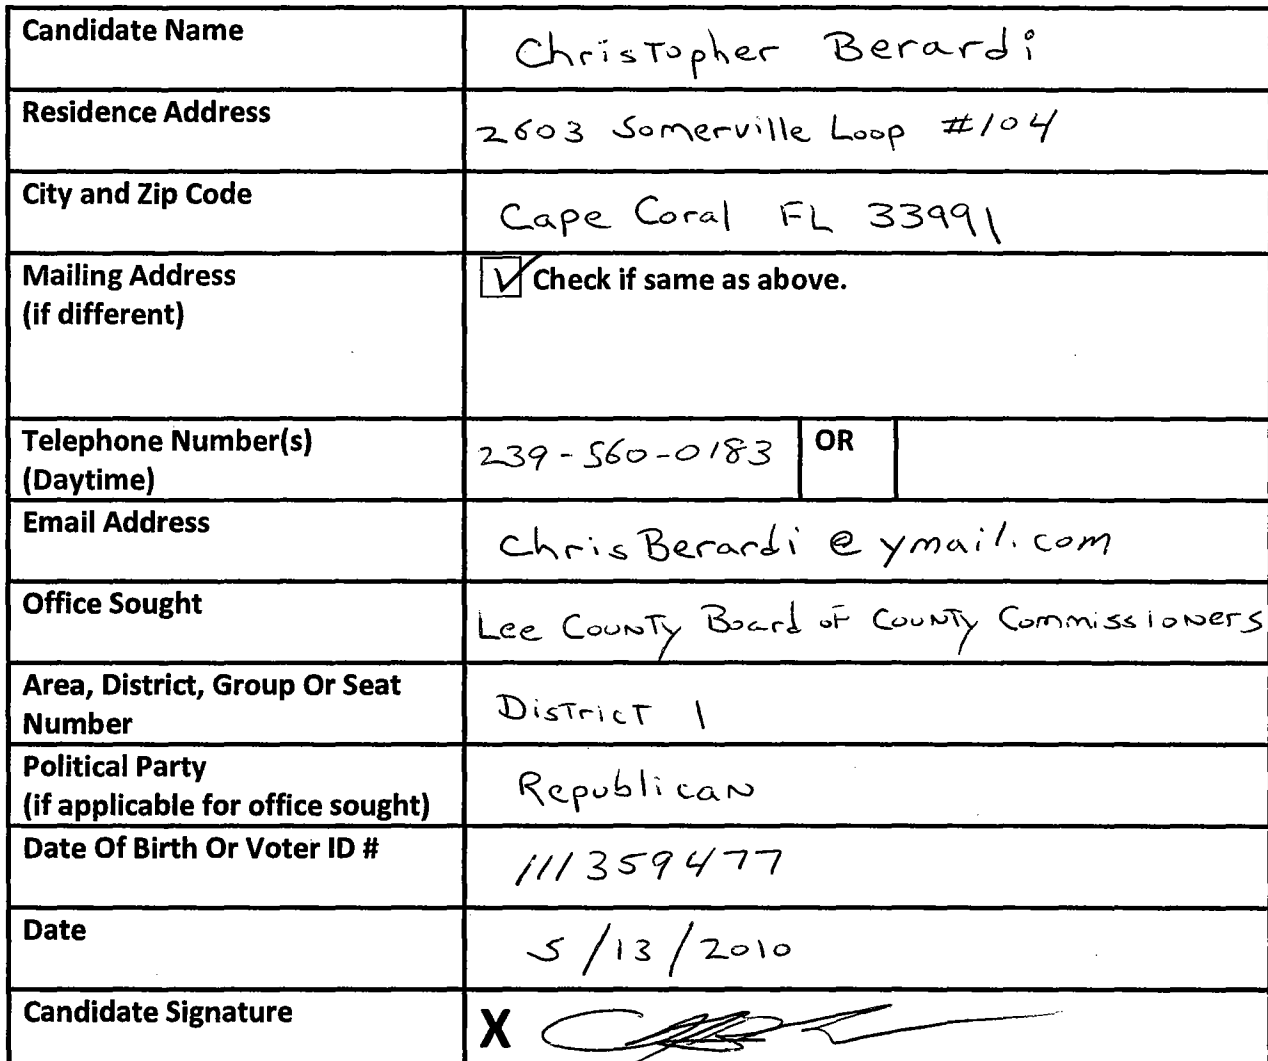 Candidate Name Christopher Berardi
Residence Address 2603 Somerville Loop #104
City and Zip Code Cape Coral FL 33991
Mailing Address
(if different)
Check if same as above.
Telephone Number(s)
(Daytime)
239-560-0183 OR
Email Address ChrisBerardi@ymail.com
Office Sought Lee County Board of County Commissioners
Area, District, Group Or Seat
Number
District 1
Political Party
(if applicable for office sought)
Republican
Date Of Birth Or Voter ID # 111359477
Date 5/13/2010
Candidate Signature X